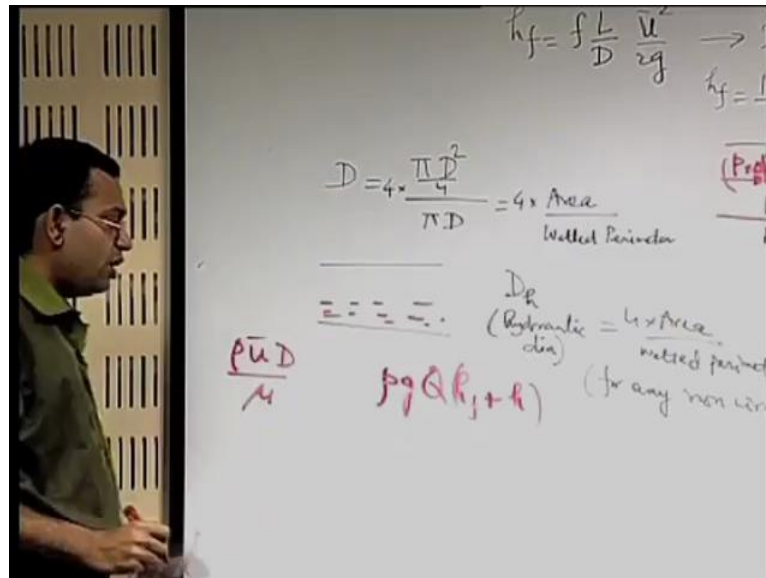 h_f = f L/D ū²/2g →
h_f =
D = 4 × (πD²/4)/(πD) = 4 × Area/Wetted Perimeter
D_h (Hydraulic dia) = 4 × Area/wetted perimet
(for any non cir
ρūD/μ
ρgQ(h_f + h)